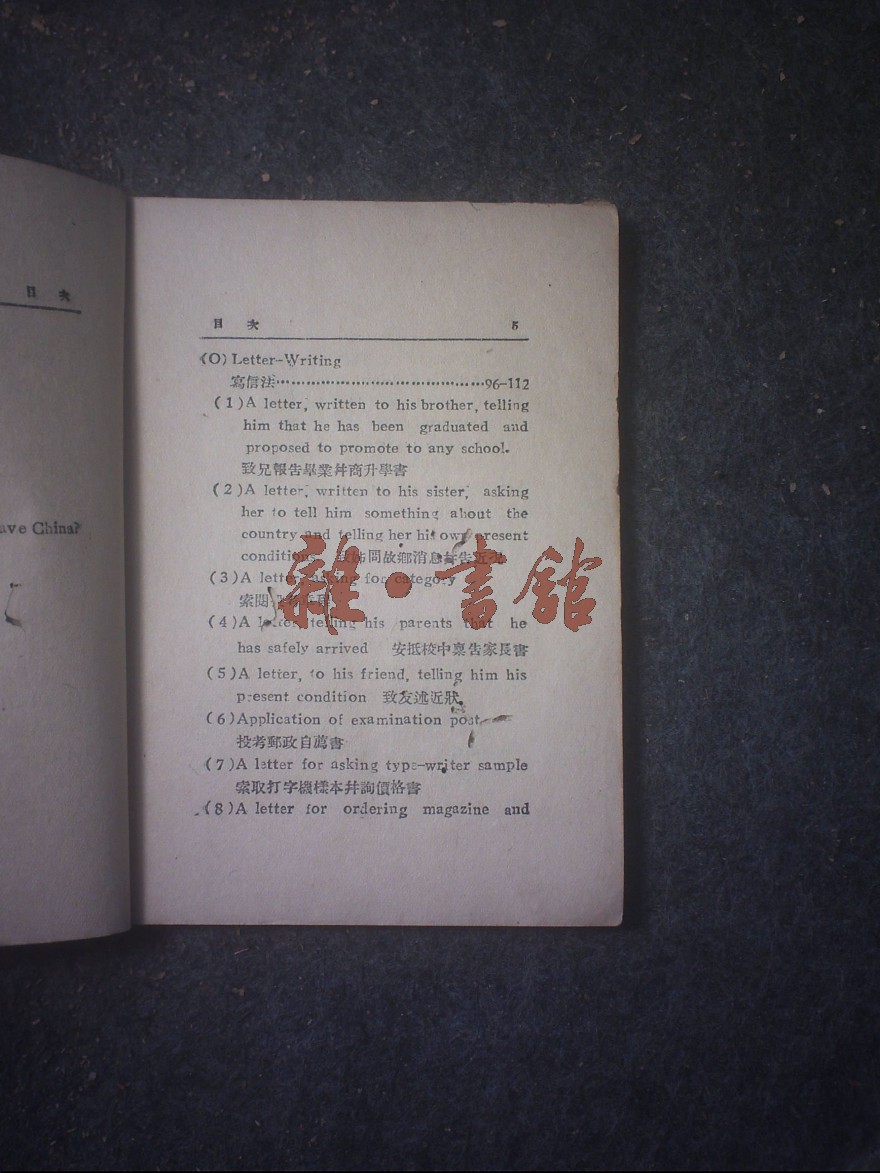 目 次
ave China?
目 次 5
(O) Letter-Writing
寫信法……………………………………96-112
(1) A letter, written to his brother, telling
him that he has been graduated and
proposed to promote to any school.
致兄報告畢業幷商升學書
(2) A letter, written to his sister, asking
her to tell him something about the
country and telling her his own present
conditions 致姊問故鄉消息幷告近況
(3) A letter asking for category
索閱
(4) A letter, telling his parents that he
has safely arrived 安抵校中稟告家長書
(5) A letter, to his friend, telling him his
present condition 致友述近狀
(6) Application of examination post
投考郵政自薦書
(7) A letter for asking type-writer sample
索取打字機樣本幷詢價格書
(8) A letter for ordering magazine and
雜·書館